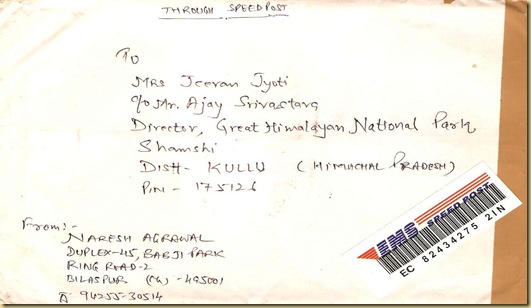 THROUGH SPEEDPOST
To
Mrs Jeevan Jyoti
c/o Mr. Ajay Srivastava
Director, Great Himalayan National Park
Shamshi
Distt- KULLU (HIMACHAL PRADESH)
PIN - 175126
EMS SPEED POST
EC 82434275 2IN
From:-
NARESH AGRAWAL
DUPLEX-45, BABJI PARK
RING ROAD-2
BILASPUR (CG) - 495001
94255-30514